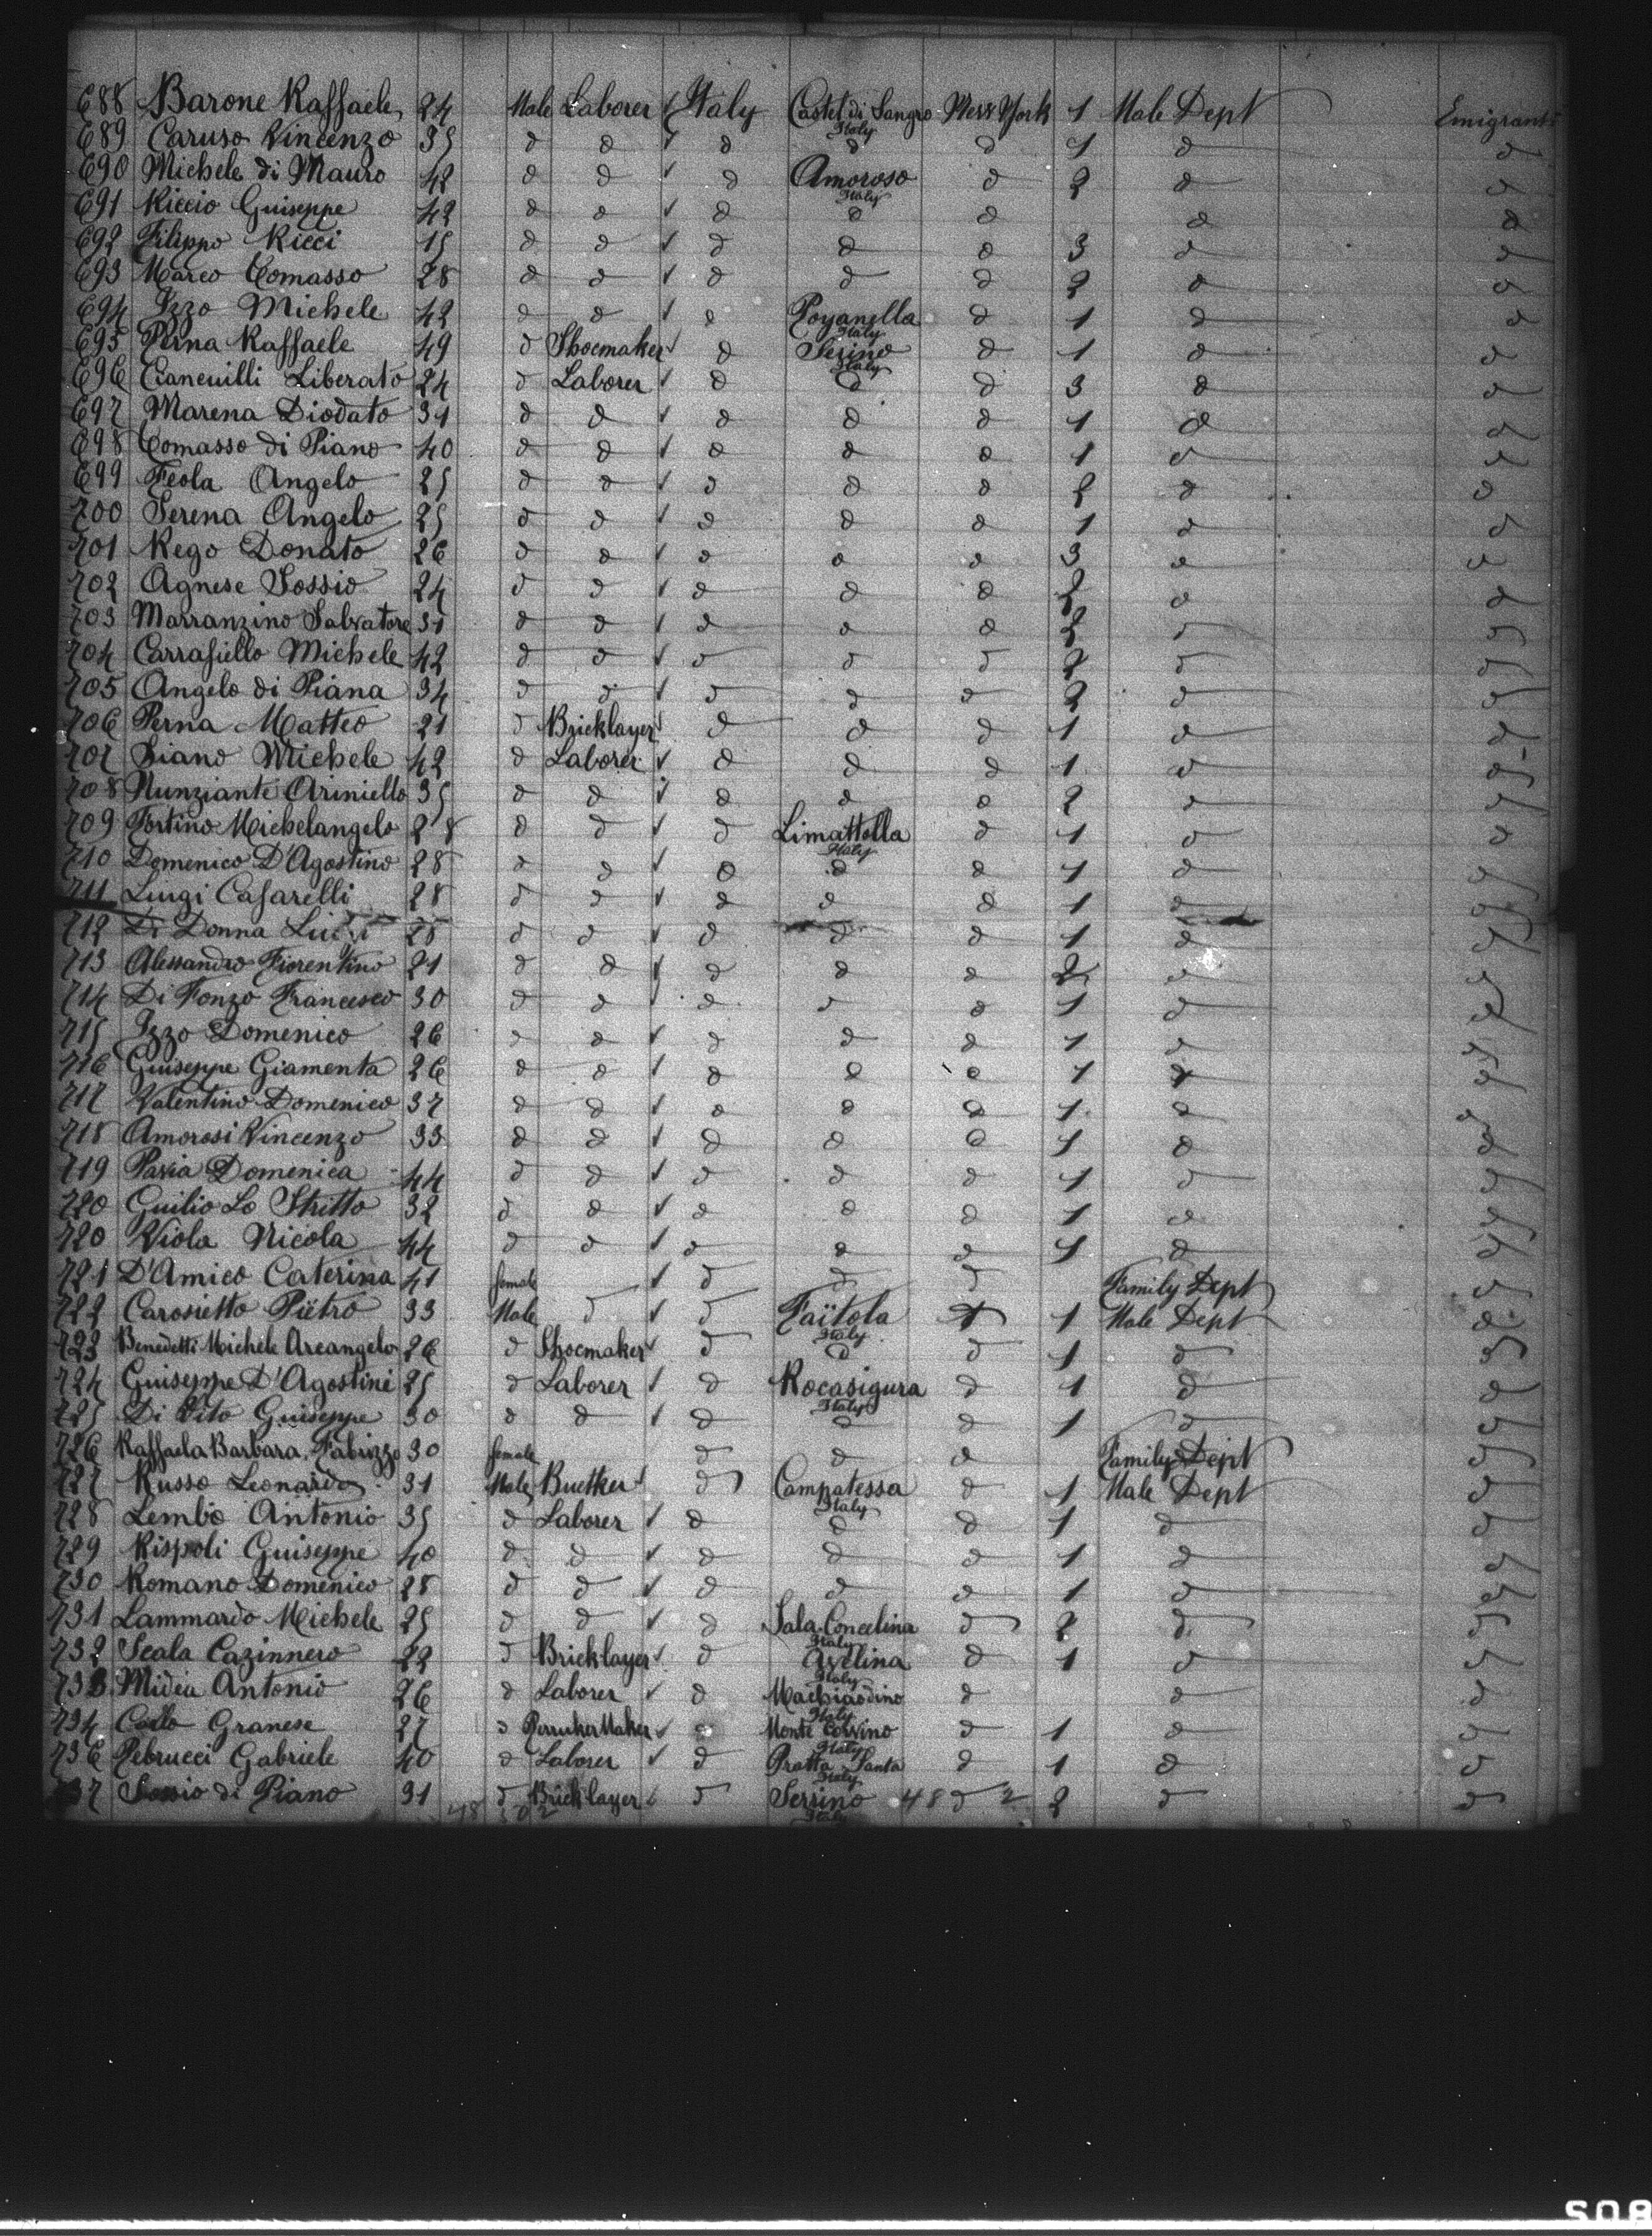 688 Barone Raffaele 24 Male Laborer ✓ Italy Castel di Sangro Italy New York 1 Male Dept Emigrants
689 Caruso Vincenzo 35 d d ✓ d d d 1 d d
690 Michele di Mauro 42 d d ✓ d Amoroso Italy d 2 d d
691 Riccio Guiseppe 42 d d ✓ d d d d d
692 Filippo Ricci 15 d d ✓ d d d 3 d d
693 Marco Tomasso 28 d d ✓ d d d 2 d d
694 Izzo Michele 42 d d ✓ d Poyanella Italy d 1 d d
695 Perna Raffaele 49 d Shoemaker ✓ d Serino Italy d 1 d d
696 Cianeuilli Liberato 24 d Laborer ✓ d d d 3 d d
697 Marena Diodato 31 d d ✓ d d d 1 d d
698 Tomasso di Piano 40 d d ✓ d d d 1 d d
699 Feola Angelo 25 d d ✓ d d d 2 d d
700 Serena Angelo 25 d d ✓ d d d 1 d d
701 Rego Donato 26 d d ✓ d d d 3 d d
702 Agnese Sossio 24 d d ✓ d d d 2 d d
703 Marranzino Salvatore 31 d d ✓ d d d 2 d d
704 Carrafiello Michele 42 d d ✓ d d d 2 d d
705 Angelo di Piana 34 d d ✓ d d d 2 d d
706 Perna Matteo 21 d Bricklayer ✓ d d d 1 d d
707 Piano Michele 42 d Laborer ✓ d d d 1 d d
708 Nunziante Ariniello 35 d d ✓ d d d 2 d d
709 Fortino Michelangelo 28 d d ✓ d Limattolla Italy d 1 d d
710 Domenico D'Agostino 28 d d ✓ d d d 1 d d
711 Luigi Casarelli 28 d d ✓ d d d 1 d d
712 Di Donna Luigi 28 d d ✓ d d d 1 d d
713 Alessandro Fiorentino 21 d d ✓ d d d 2 d d
714 Di Fonzo Francesco 30 d d ✓ d d d 1 d d
715 Izzo Domenico 26 d d ✓ d d d 1 d d
716 Guiseppe Giamenta 26 d d ✓ d d d 1 d d
717 Valentino Domenico 37 d d ✓ d d d 1 d d
718 Amorosi Vincenzo 33 d d ✓ d d d 1 d d
719 Pavia Domenica 44 d d ✓ d d d 1 d d
720 Guilio Lo Stritto 32 d d ✓ d d d 1 d d
720 Viola Nicola 44 d d ✓ d d d 1 d d
721 D'Amico Caterina 41 female ✓ d d d Family Dept d
722 Carosietto Piëtro 33 Male d ✓ d Faïtola Italy d 1 Male Dept d
723 Benedetti Michele Arcangelo 26 d Shoemaker ✓ d d d 1 d d
724 Guiseppe D'Agostini 25 d Laborer ✓ d Rocasigura Italy d 1 d d
725 Di Vito Guiseppe 30 d d ✓ d d d 1 d d
726 Raffaela Barbara Fabrizzo 30 female d d d Family Dept d
727 Russo Leonardo 31 Male Buetker ✓ d Campatessa Italy d 1 Male Dept d
728 Lembo Antonio 35 d Laborer ✓ d d d 1 d d
729 Rispoli Guiseppe 40 d d ✓ d d d 1 d d
730 Romano Domenico 28 d d ✓ d d d 1 d d
731 Lammardo Michele 25 d d ✓ d Sala Concelina Italy d 2 d d
732 Scala Cazinnero 22 d Bricklayer ✓ d Avelina Italy d 1 d d
733 Midia Antonio 26 d Laborer ✓ d Machiaodino Italy d d d
734 Carlo Granese 27 d Perruker Maker ✓ d Monte Corvino Italy d 1 d d
736 Pebrucci Gabriele 40 d Laborer ✓ d Pratta Santa Italy d 1 d d
737 Sossio di Piano 31 d Bricklayer ✓ d Serrino Italy 48 d 2 2 d d
508